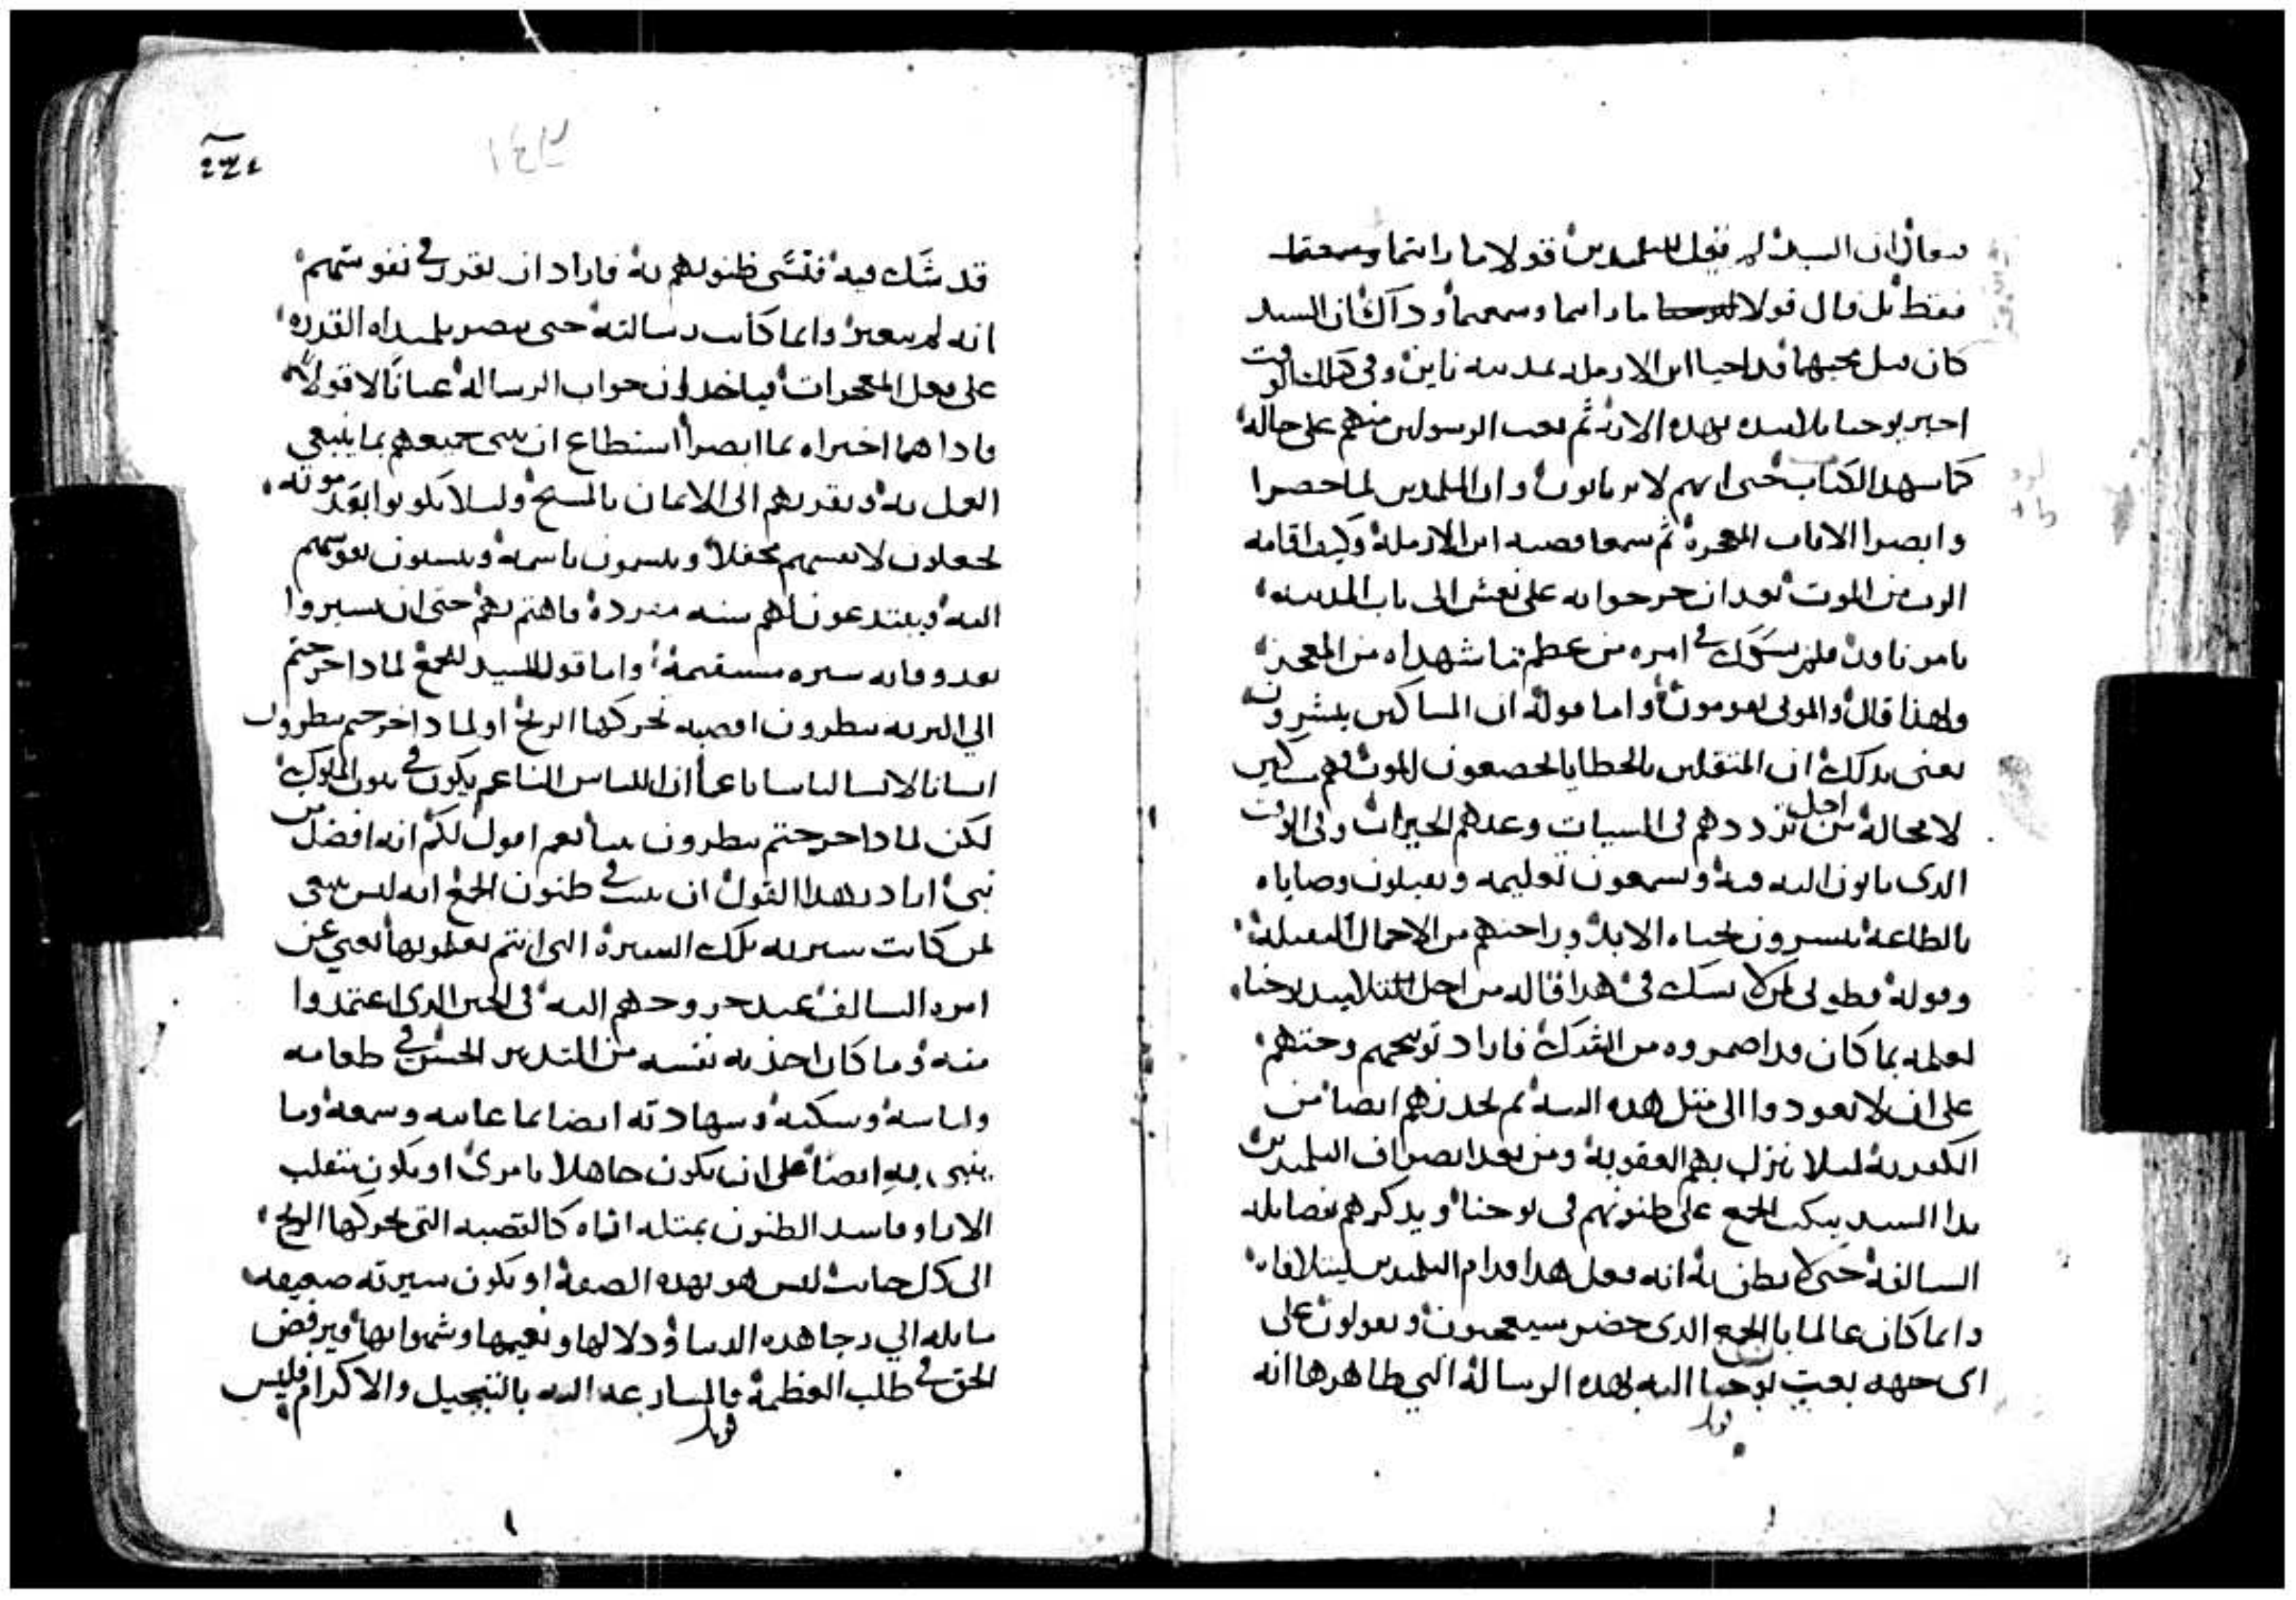 فيقال ان السيد لم يقل للتلميذين قولا ما رايتما وسمعتما
فقط بل قال قولا ما رايتما وسمعتما وذاك ان السيد
كان قبل مجيهما قد احيا ابن الارملة بمدينة نايين وفي ذلك الوقت
اخبر يوحنا تلاميذه بهذه الايات ثم بعث الرسولين منهم على حاله
كما شهد الكتاب حتى انهم لا يرتابون وان التلميذين لما حضرا
وابصرا الايات المعجزة ثم سمعا قصة ابن الارملة وكيف اقامه
الرب من الموت بعد ان خرجوا به على نعش الى باب المدينة
بامر ناون فلم يشكوا في امره من عظم ما شهداه من المعجز
ولهذا قال والموتى يقومون واما قوله ان المساكين يبشرون
يعني بذلك ان المثقلين بالخطايا الخاضعون للموت فهم مساكين
لا محالة من اجل ترددهم في السيات وعدمهم الخيرات وفي الوقت
الذي ياتون اليه فيه ويسمعون تعليمه ويقبلون وصاياه
بالطاعة يبشرون بحياة الابد وراحتهم من الاحمال الثقيلة
وقوله فطوبى لمن لا يشك في هذا قاله من اجل التلاميذ يوحنا
لعلمه بما كان قد اضمروه من الشك فاراد توبيخهم وحثهم
على ان لا يعودوا الى مثل هذه النية ثم يحذرهم ايضا من
الكفر به ليلا ينزل بهم العقوبة ومن بعد انصراف التلميذين
بدا السيد يبكت الجمع على ظنونهم في يوحنا ويذكرهم فضايله
السالفة حتى لا يظن به انه فعل هذا قدام التلميذين ليتلافاه
وانما كان عالما بالجمع الذي حضر سيعجبون ويقولون على
اي جهة بعث يوحنا اليه بهذه الرسالة التي ظاهرها انه
قد شك فيه فتسى ظنونهم به فاراد ان يقرر في نفوسهم
انه لم يتغير وانما كانت رسالته حتى يبصر تلميذاه القدرة
على فعل المعجزات فياخذون جواب الرسالة عيانا لا قولا
فاذا هما اخبراه بما ابصرا استطاع ان جميعهم بما ينبغي
العمل به ويقربهم الى الايمان بالمسيح وليلا يكونوا بعد موته
يجعلون لانفسهم محفلا ويتسمون باسمه وينسبون نفوسهم
اليه ويبتدعون لهم سنة منفردة فاهتم بهم حتى ان يسيروا
بعد وفاته سيرة مستقيمة واما قول السيد للجمع لماذا خرجتم
الى البرية تنظرون اقصبة تحركها الريح او لماذا خرجتم تنظرون
انسانا لابسا لباسا ناعما ان اللباس الناعم يكون في بيوت الملوك
لكن لماذا خرجتم تنظرون نبيا نعم اقول لكم انه افضل من
نبي اراد بهذا القول ان يثبت في ظنون الجمع انه ليس ينبغي
لمن كانت سيرته تلك السيرة التي انتم تعلمونها يعني عن
امره السالف عند خروجهم اليه في الحين الذي اعتمدوا
منه وما كان اخذ به نفسه من التدبير الخشن في طعامه
ولباسه وسكنه وشهادته ايضا بما عاينه وسمعه وما
به ايضا على ان يكون جاهلا بامري او يكون متقلب
الاراء وفاسد الظنون بمثله اياه كالقصبة التي تحركها الريح
الى كل جانب ليس هو بهذه الصفة او يكون سيرته ضعيفة
مايلة الى رجا هذه الدنيا ودلالها ونعيمها وشهواتها ويرفض
الحق في طلب العظمة والمسارعة اليه بالتبجيل والاكرام فليس